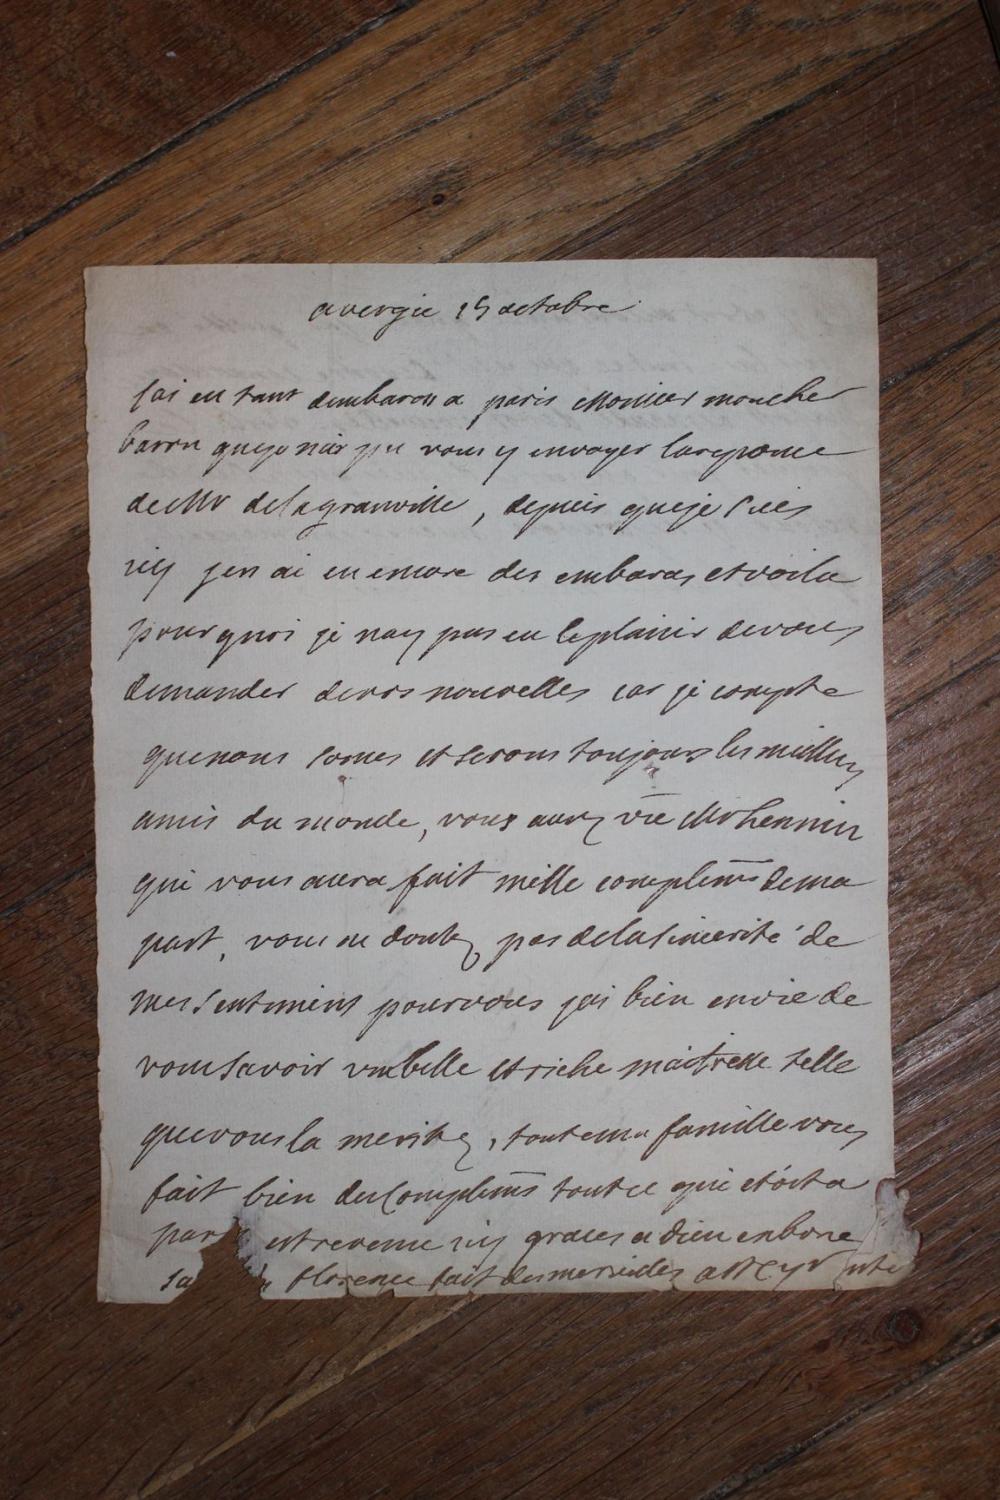 a vergie 15 octobre
Jai eu tant dembaras a paris Monsieur mon cher
baron que je nai pu vous y envoyer la reponce
de Mr de lagranville, depuis que je suis
icy jen ai eu encore des embaras et voila
pourquoi je nay pas eu le plaisir de vous
demander de vos nouvelles car je compte
que nous somes et serons toujours les meilleurs
amis du monde, vous aurez vue Mr hennin
qui vous aura fait mille complimts de ma
part, vous ne doutez pas de la sincerité de
mes sentiments pour vous jai bien envie de
vous savoir une belle et riche maitresse telle
que vous la meritez, toute ma famille vous
fait bien des complimts tout ce qui etoit a
par est revenue icy graces a dieu en bone
sa florence fait des merveilles a St Cyr